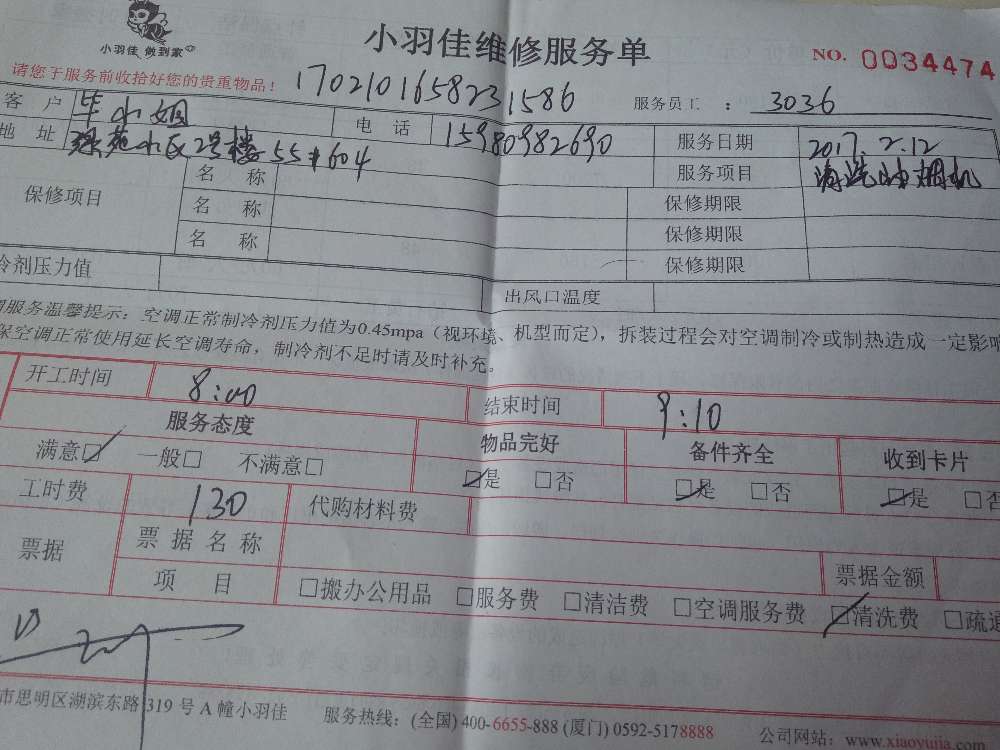 小羽佳 做到家
小羽佳维修服务单
NO. 0034474
请您于服务前收拾好您的贵重物品！
170210165823 1586
服务员工 ： 3036
客 户 毕小姐 电 话 15980982690 服务日期 2017.2.12
地 址 绿苑小区2号楼55#604 服务项目 清洗油烟机
保修项目 名 称 保修期限
名 称 保修期限
名 称 保修期限
冷剂压力值 出风口温度
服务温馨提示：空调正常制冷剂压力值为0.45mpa（视环境、机型而定），拆装过程会对空调制冷或制热造成一定影响
保空调正常使用延长空调寿命，制冷剂不足时请及时补充。
开工时间 8:00 结束时间 9:10
服务态度 物品完好 备件齐全 收到卡片
满意☑ 一般□ 不满意□ ☑是 □否 ☑是 □否 ☑是 □否
工时费 130 代购材料费
票据 票据名称 票据金额
项 目 □搬办公用品 □服务费 □清洁费 □空调服务费 ☑清洗费 □疏通
市思明区湖滨东路319号A幢小羽佳 服务热线：(全国) 400-6655-888 (厦门) 0592-5178888 公司网站：www.xiaoyujia.com